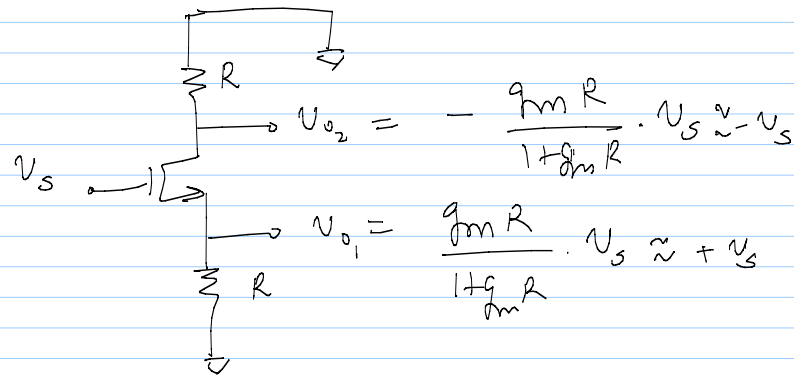 R
v_{o_2} = - \frac{g_m R}{1+g_m R} . v_s ≈ - v_s
v_s
v_{o_1} = \frac{g_m R}{1+g_m R} . v_s ≈ + v_s
R